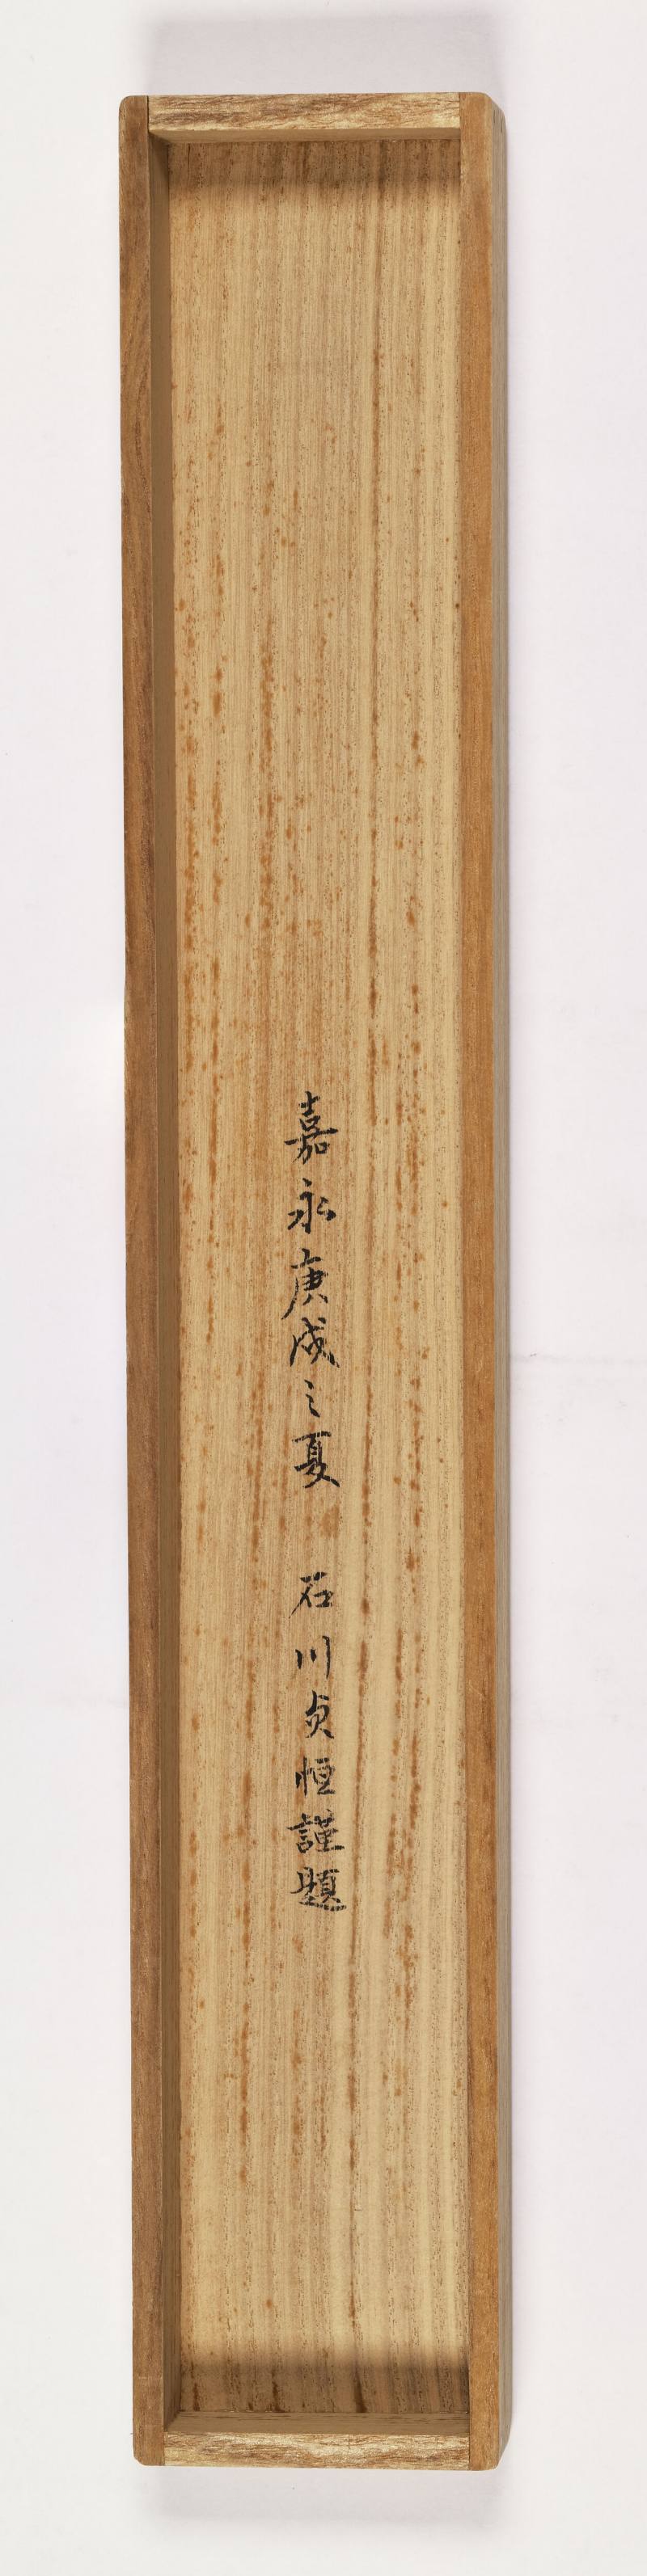 嘉永庚戌之夏　石川貞恒謹題